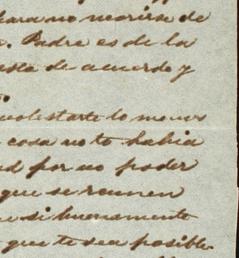 para no morirse de
Padre es de la
de acuerdo y
molestarte lo menos
cosa no te habia
por no poder
que se reunen
si buenamente
que te sea posible